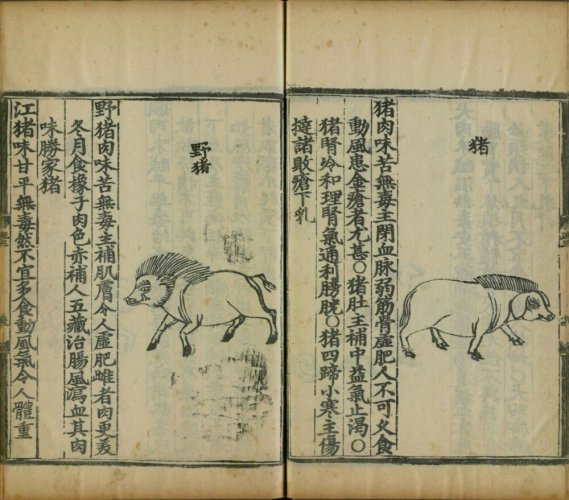 猪
猪肉味苦無毒主閉血脉弱筋骨虛肥人不可久食
動風患金瘡者尤甚〇猪肚主補中益氣止渴〇
猪腎冷和理腎氣通利膀胱〇猪四蹄小寒主傷
撻諸敗瘡下乳
野猪
野猪肉味苦無毒主補肌膚令人虛肥雌者肉更美
冬月食橡子肉色赤補人五藏治腸風瀉血其肉
味勝家猪
江猪味甘平無毒然不宜多食動風氣令人體重